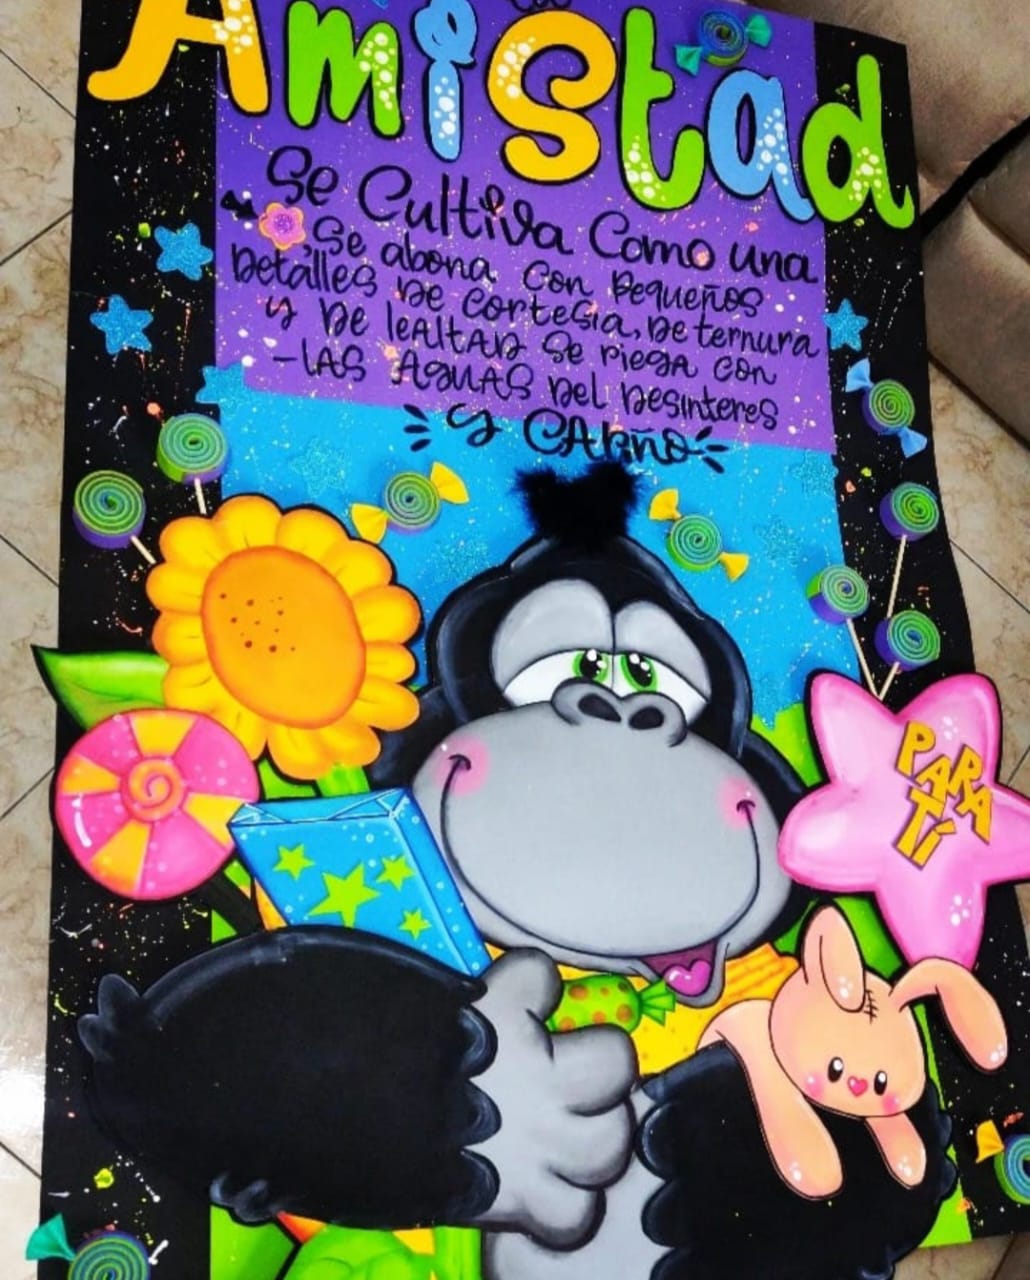 La
Amistad
Se Cultiva Como una
Se abona con pequeños
Detalles De cortesia, De ternura
y De lealtad se riega con
-LAS AguAS Del Desinteres
y CARiño
PARA
Tí